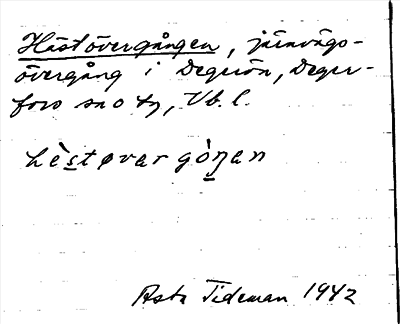 Hästövergången, järnvägs-
övergång i Degerön, Deger-
fors sn o tg, Vb. l.
hè̱støvar gò̱ŋan
Asta Tideman 1942